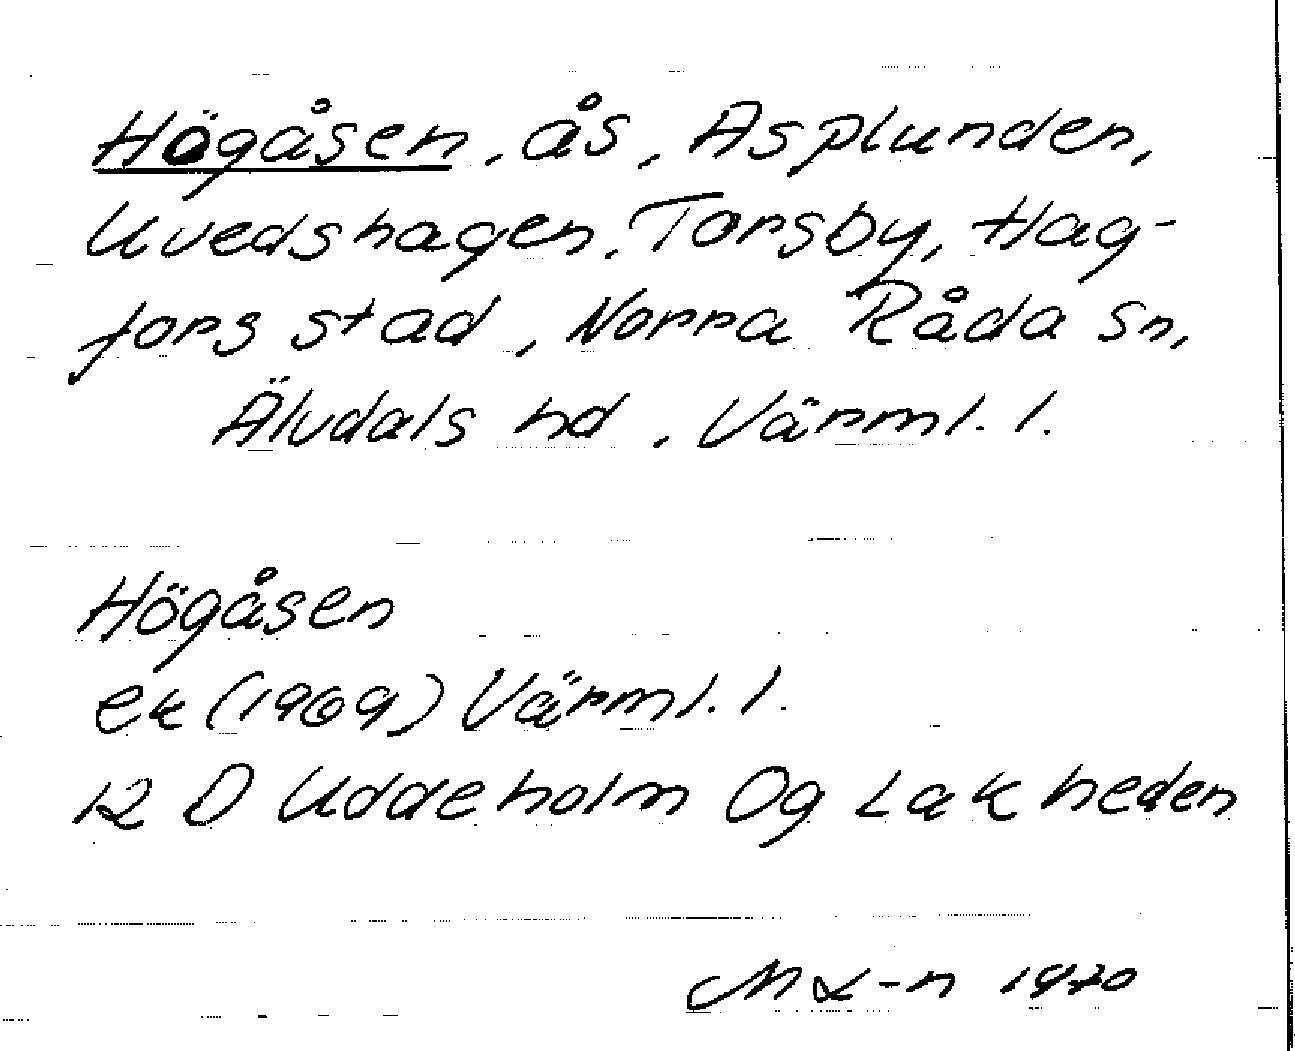 Högåsen, ås, Asplunden,
Uvedshagen, Torsby, Hag-
fors stad, Norra Råda sn,
Älvdals hd, Värml. l.
Högåsen
ek (1969) Värml. l.
12 D Uddeholm Og Lakheden
1970